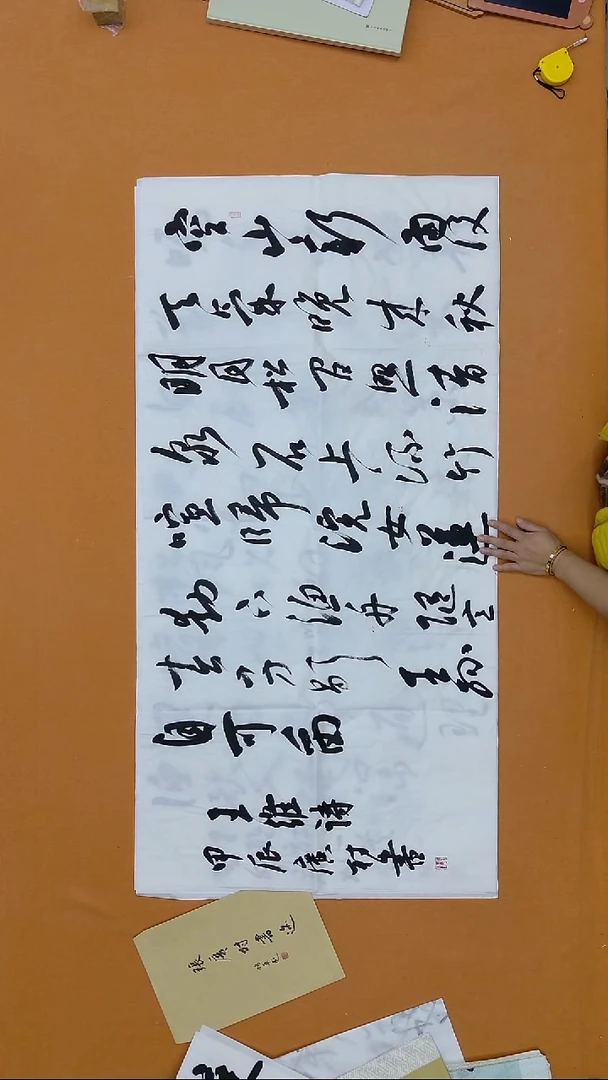 空山新雨後
天氣晚來秋
明月松間照清
泉石上流竹
喧歸浣女蓮
動下漁舟隨意
春芳歇王孫
自可留
王維诗
甲辰廣村書